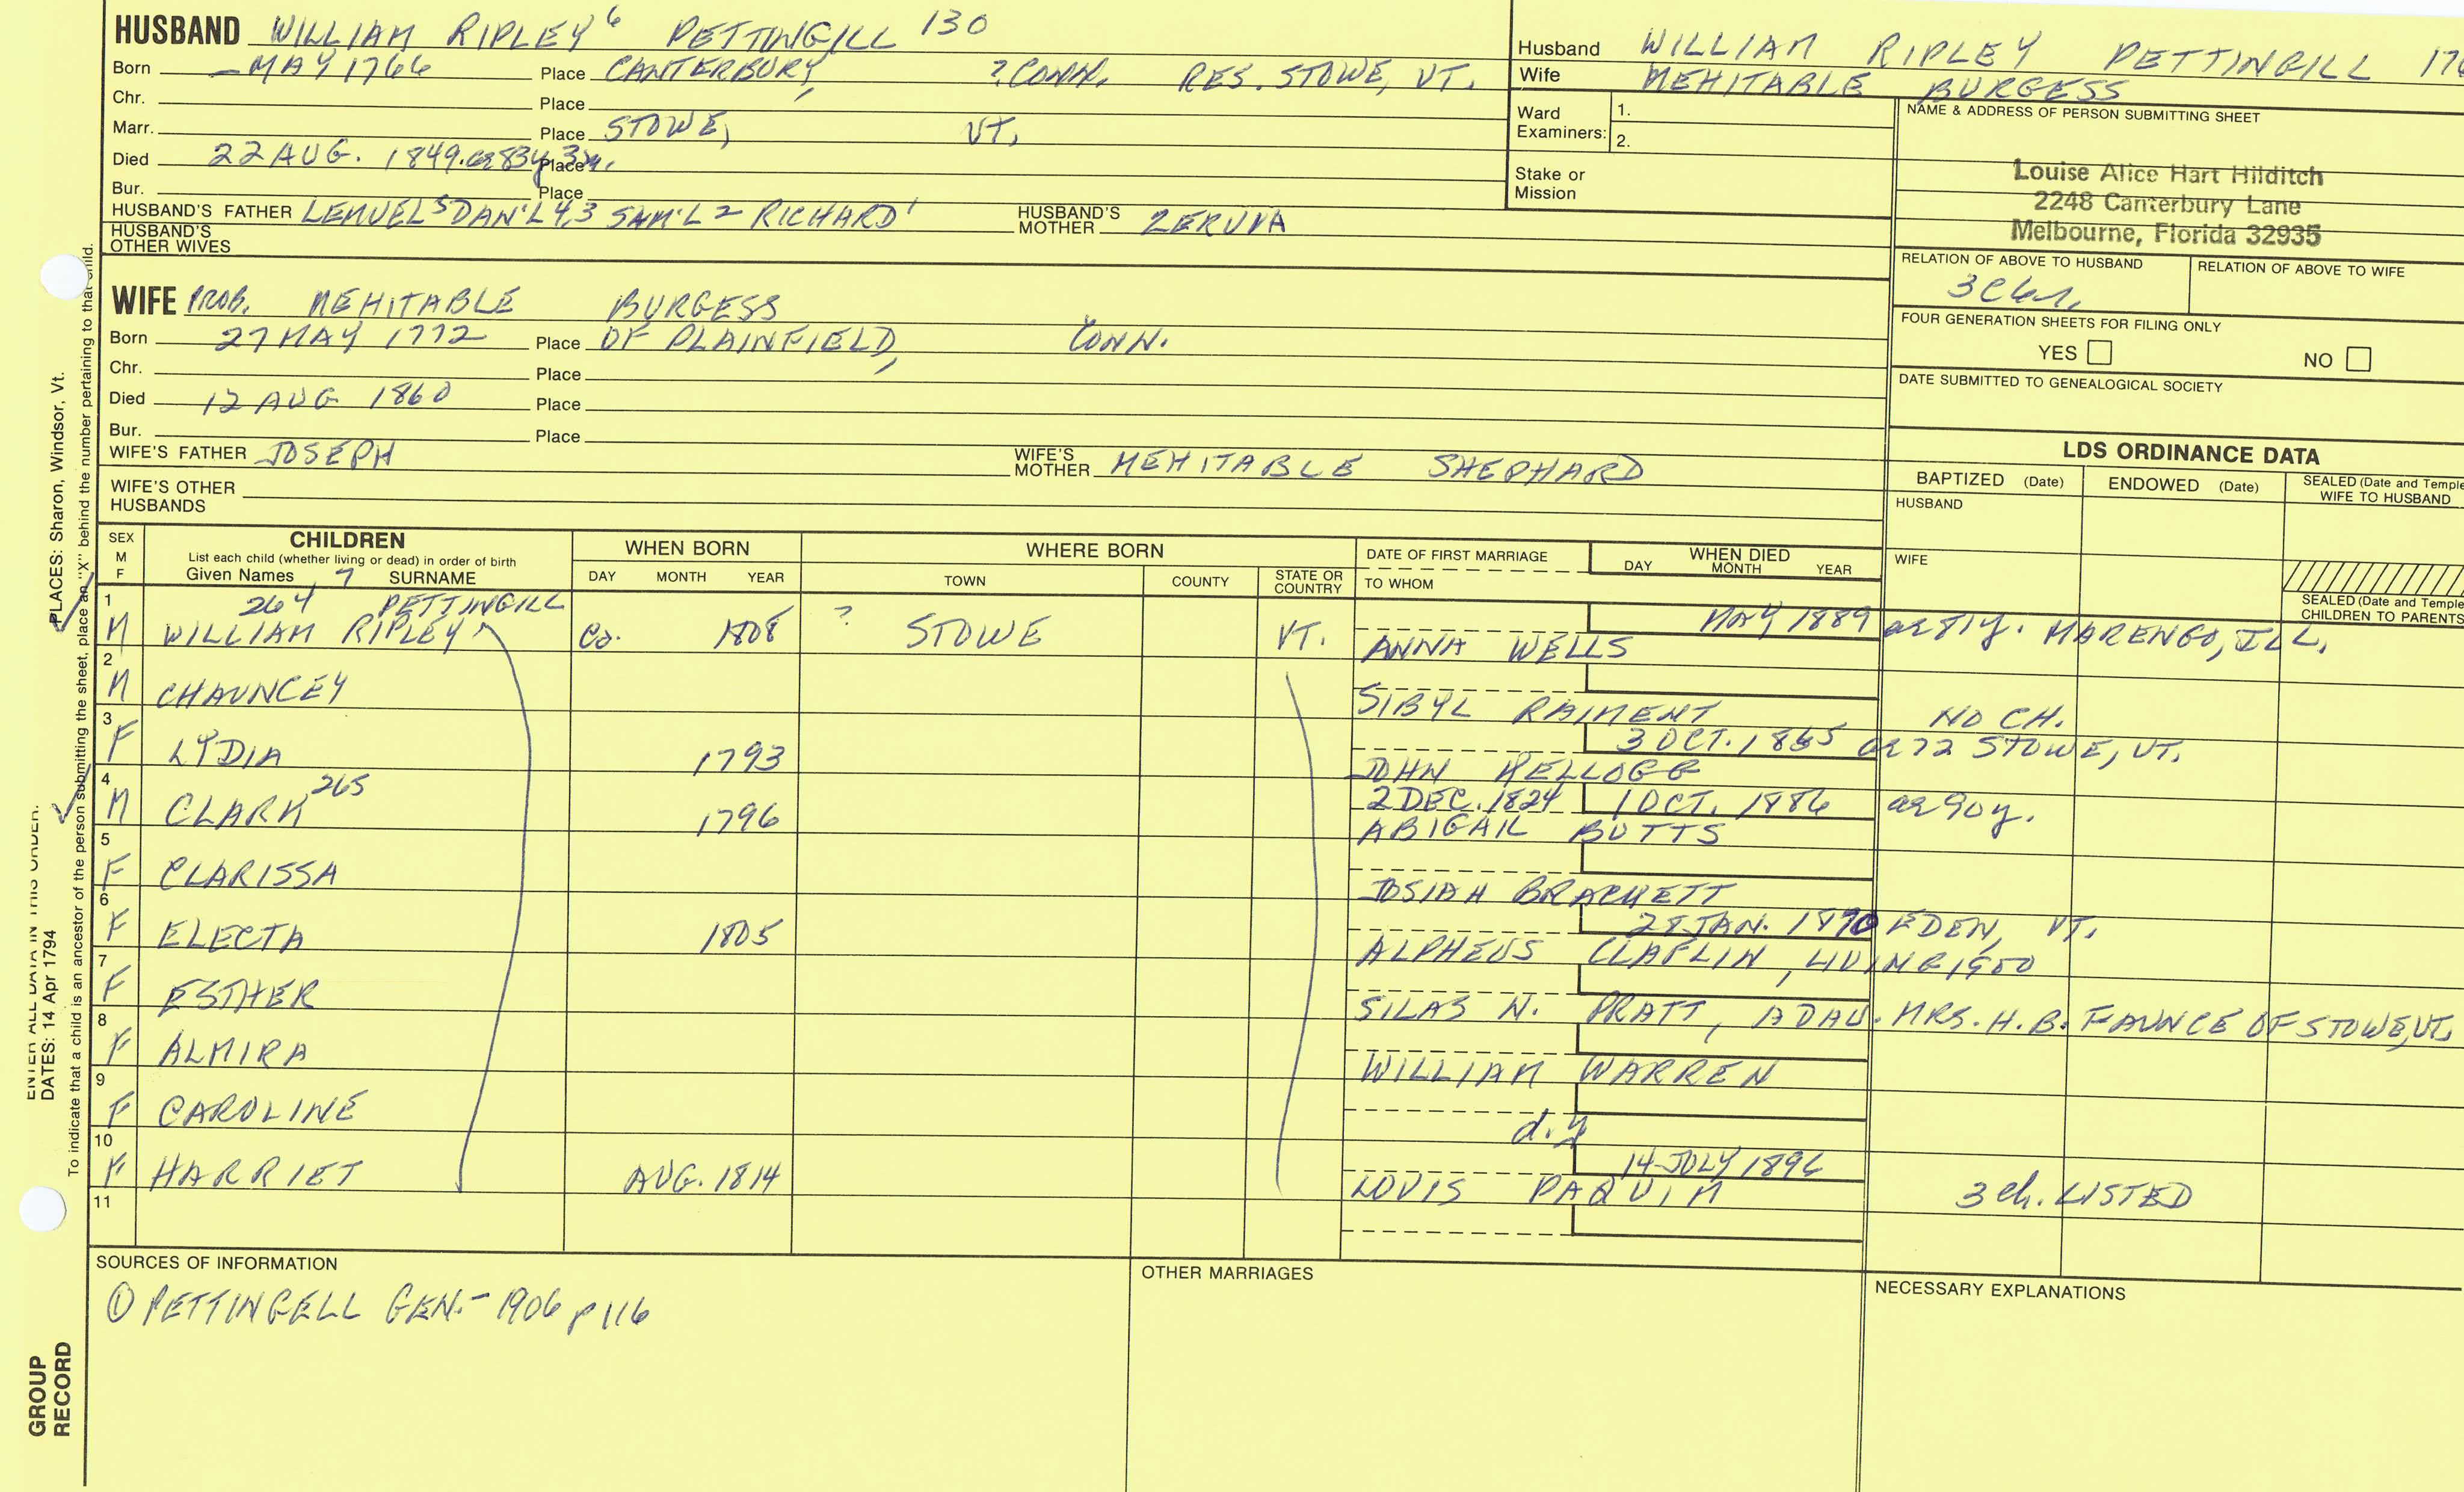 HUSBAND WILLIAM RIPLEY 6 PETTINGILL 130
Born — MAY 1766 Place CANTERBURY, ? CONN. RES. STOWE, VT.
Chr. Place
Marr. Place STOWE, VT.
Died 22 AUG. 1849. ae 83y 3m. Place
Bur. Place
HUSBAND'S FATHER LEMUEL 5 DAN'L 4,3 SAM'L 2 RICHARD 1 HUSBAND'S MOTHER ZERUIA
HUSBAND'S OTHER WIVES
Husband WILLIAM RIPLEY PETTINGILL 176
Wife MEHITABLE BURGESS
Ward Examiners: 1.
2.
Stake or Mission
NAME & ADDRESS OF PERSON SUBMITTING SHEET
Louise Alice Hart Hilditch
2248 Canterbury Lane
Melbourne, Florida 32935
RELATION OF ABOVE TO HUSBAND RELATION OF ABOVE TO WIFE
FOUR GENERATION SHEETS FOR FILING ONLY
YES NO
DATE SUBMITTED TO GENEALOGICAL SOCIETY
WIFE PROB. MEHITABLE BURGESS
Born 27 MAY 1772 Place OF PLAINFIELD, CONN.
Chr. Place
Died 12 AUG 1860 Place
Bur. Place
WIFE'S FATHER JOSEPH WIFE'S MOTHER MEHITABLE SHEPHARD
WIFE'S OTHER HUSBANDS
LDS ORDINANCE DATA
BAPTIZED (Date) ENDOWED (Date) SEALED (Date and Temple WIFE TO HUSBAND
HUSBAND
WIFE
SEALED (Date and Temple CHILDREN TO PARENTS
SEX M F
CHILDREN
List each child (whether living or dead) in order of birth
Given Names 7 SURNAME
WHEN BORN
DAY MONTH YEAR
WHERE BORN
TOWN COUNTY STATE OR COUNTRY
DATE OF FIRST MARRIAGE
TO WHOM
WHEN DIED
DAY MONTH YEAR
1 264 PETTINGILL MAY 1889 ae 81y. MARENGO, ILL.
M WILLIAM RIPLEY Ca. 1808 ? STOWE VT. ANNA WELLS
2
M CHAUNCEY SIBYL RAIMENT NO CH.
3 3 OCT. 1865 ae 72 STOWE, VT.
F LYDIA 1793 JOHN KELLOGG
4 265 2 DEC. 1824 1 OCT. 1886 ae 90y.
M CLARK 1796 ABIGAIL BUTTS
5
F CLARISSA JOSIAH BRACKETT
6 28 JAN. 1890 EDEN, VT.
F ELECTA 1805 ALPHEUS CLAFLIN, LIVING 1900
7
F ESTHER SILAS N. PRATT, A DAU. MRS. H.B. FAUNCE OF STOWE, VT.
8
F ALMIRA WILLIAM WARREN
9
F CAROLINE d.y
10 14 JULY 1896
F HARRIET AUG. 1814 LOUIS PAQUIM 3 ch. LISTED
11
SOURCES OF INFORMATION
① PETTINGELL GEN. – 1906 p 116
OTHER MARRIAGES
NECESSARY EXPLANATIONS
PLACES: Sharon, Windsor, Vt.
To indicate that a child is an ancestor of the person submitting the sheet, place an "X" behind the number pertaining to that child.
ENTER ALL DATA IN THIS ORDER:
DATES: 14 Apr 1794
GROUP
RECORD